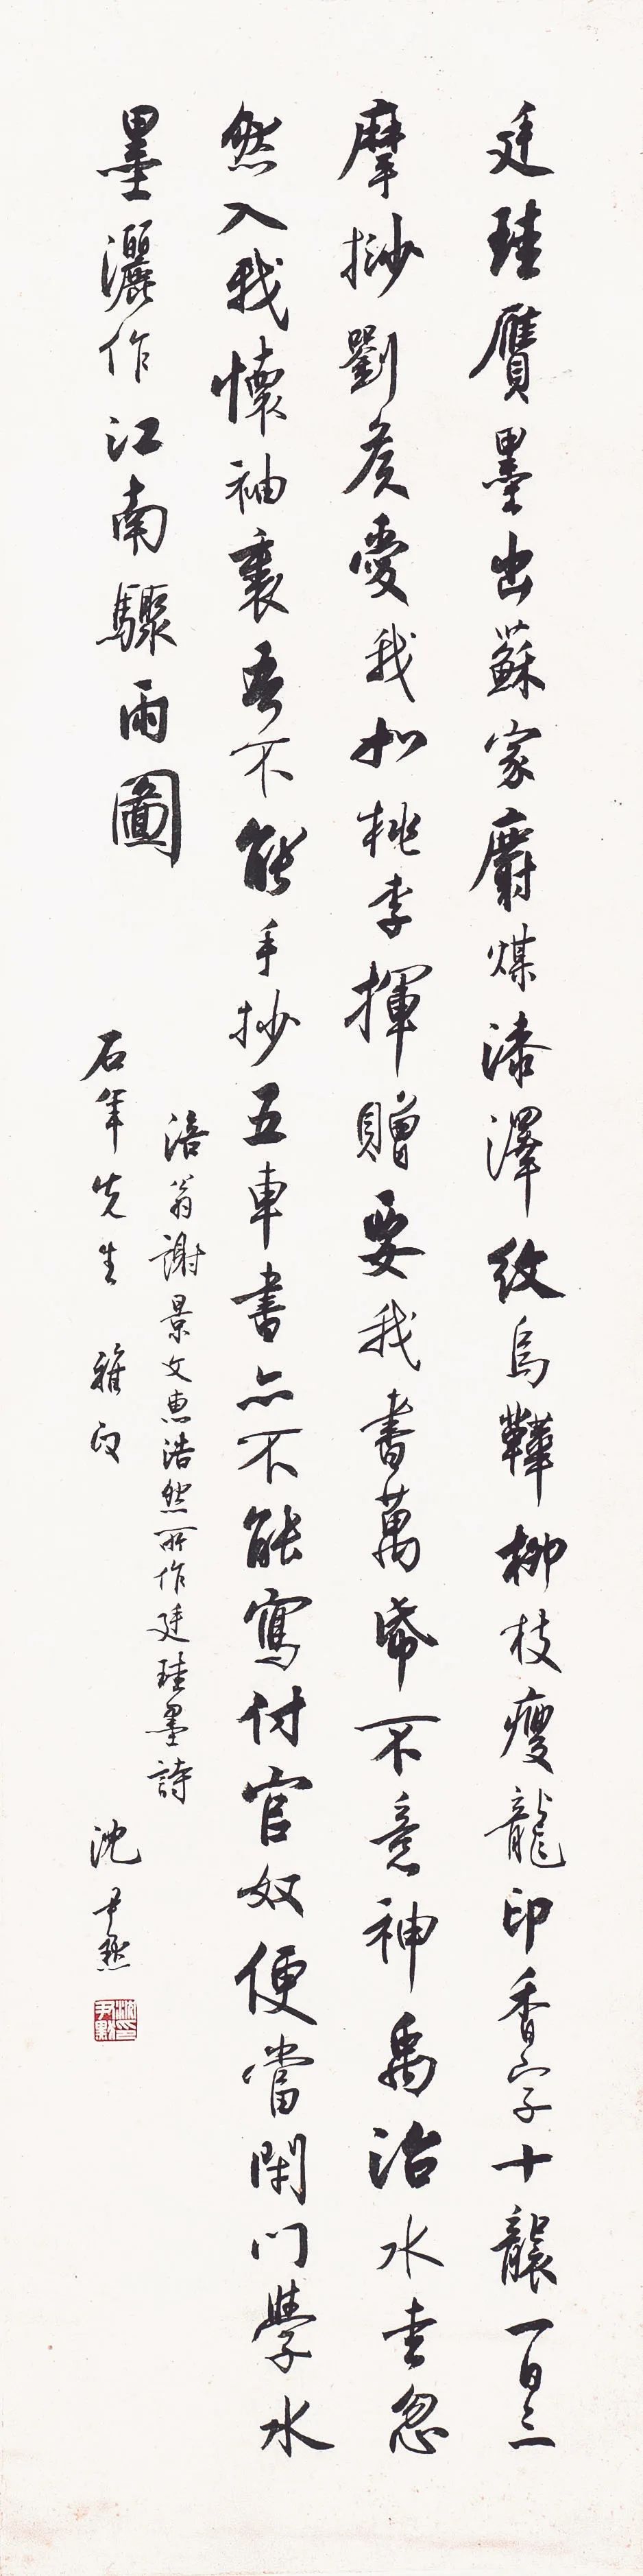 廷珪贋墨出蘇家麝煤漆澤紋烏鞾柳枝瘦龍印香字十襲一日三
摩挲劉侯愛我如桃李揮贈要我書萬紙不意神禹治水圭忽
然入我懷袖裏吾不能手抄五車書亦不能寫付官奴便當閉門學水
墨灑作江南驟雨圖
涪翁謝景文惠浩然所作廷珪墨詩
石年先生 雅正
沈尹默
沈尹默